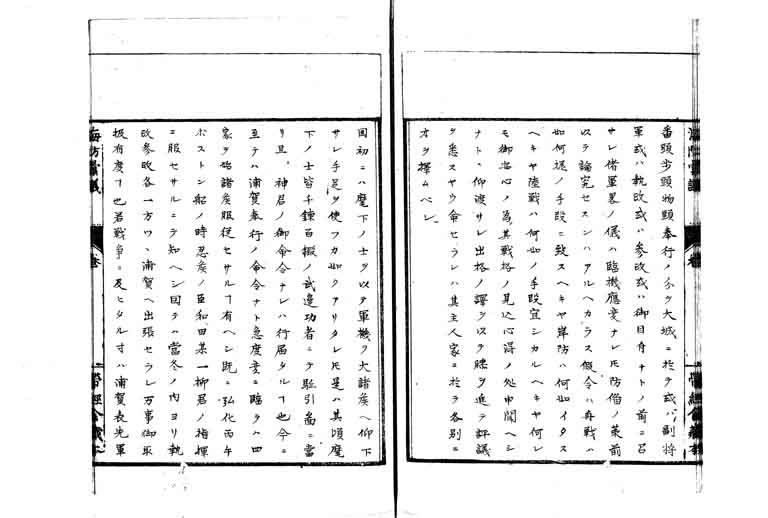 番頭歩頭物頭奉行ノ分ヲ大城ニ於テ或ハ副将
軍或ハ執政或ハ参政或ハ御目付ナトノ前ニ召
サレ備軍略ノ儀ハ臨機應変ナレ𪜈防禦ノ策前
以テ論究セスンハアルヘカラス假令ハ舟戦ハ
如何様ノ手段ニ致スヘキヤ岸防ハ何如イタス
ヘキヤ陸戦ハ何如ノ手段宜シカルヘキヤ何レ
モ御安心ノ為其戦格ノ見込心得ノ処申聞ヘシ
ナト、仰渡サレ出格ノ譯ヲ以テ膝ヲ進テ評議
ヲ悉スヤウ命セラレハ其主人家ニ於テ各別ニ
才ヲ擇ムベシ
國初ニハ麾下ノ士ヲ以テ軍機ヲ大諸矦ヘ仰下
サレ手足ヲ使フカ如クアリタレ𪜈是ハ其頃麾
下ノ士皆千錬百鍛ノ武邊功者ニテ駈引圖ニ當
リ且、神君ノ御命令ナレハ行届タルヿ也今ニ
至テハ浦賀奉行ノ命令ナト急度変ニ臨ラハ四
家ヲ始諸矦服従セサルヿ有ヘシ既ニ弘化丙午
ホストン船ノ時忍矦ノ臣和田某一柳君ノ指揮
ニ服セサルニテ知ヘシ因テハ當冬ノ内ヨリ執
政参政各一方ツ、浦賀ヘ出張セラレ万事御取
扱有度ヿ也若戦争ニ及ヒタル寸ハ浦賀表先軍
海防彙議
巻